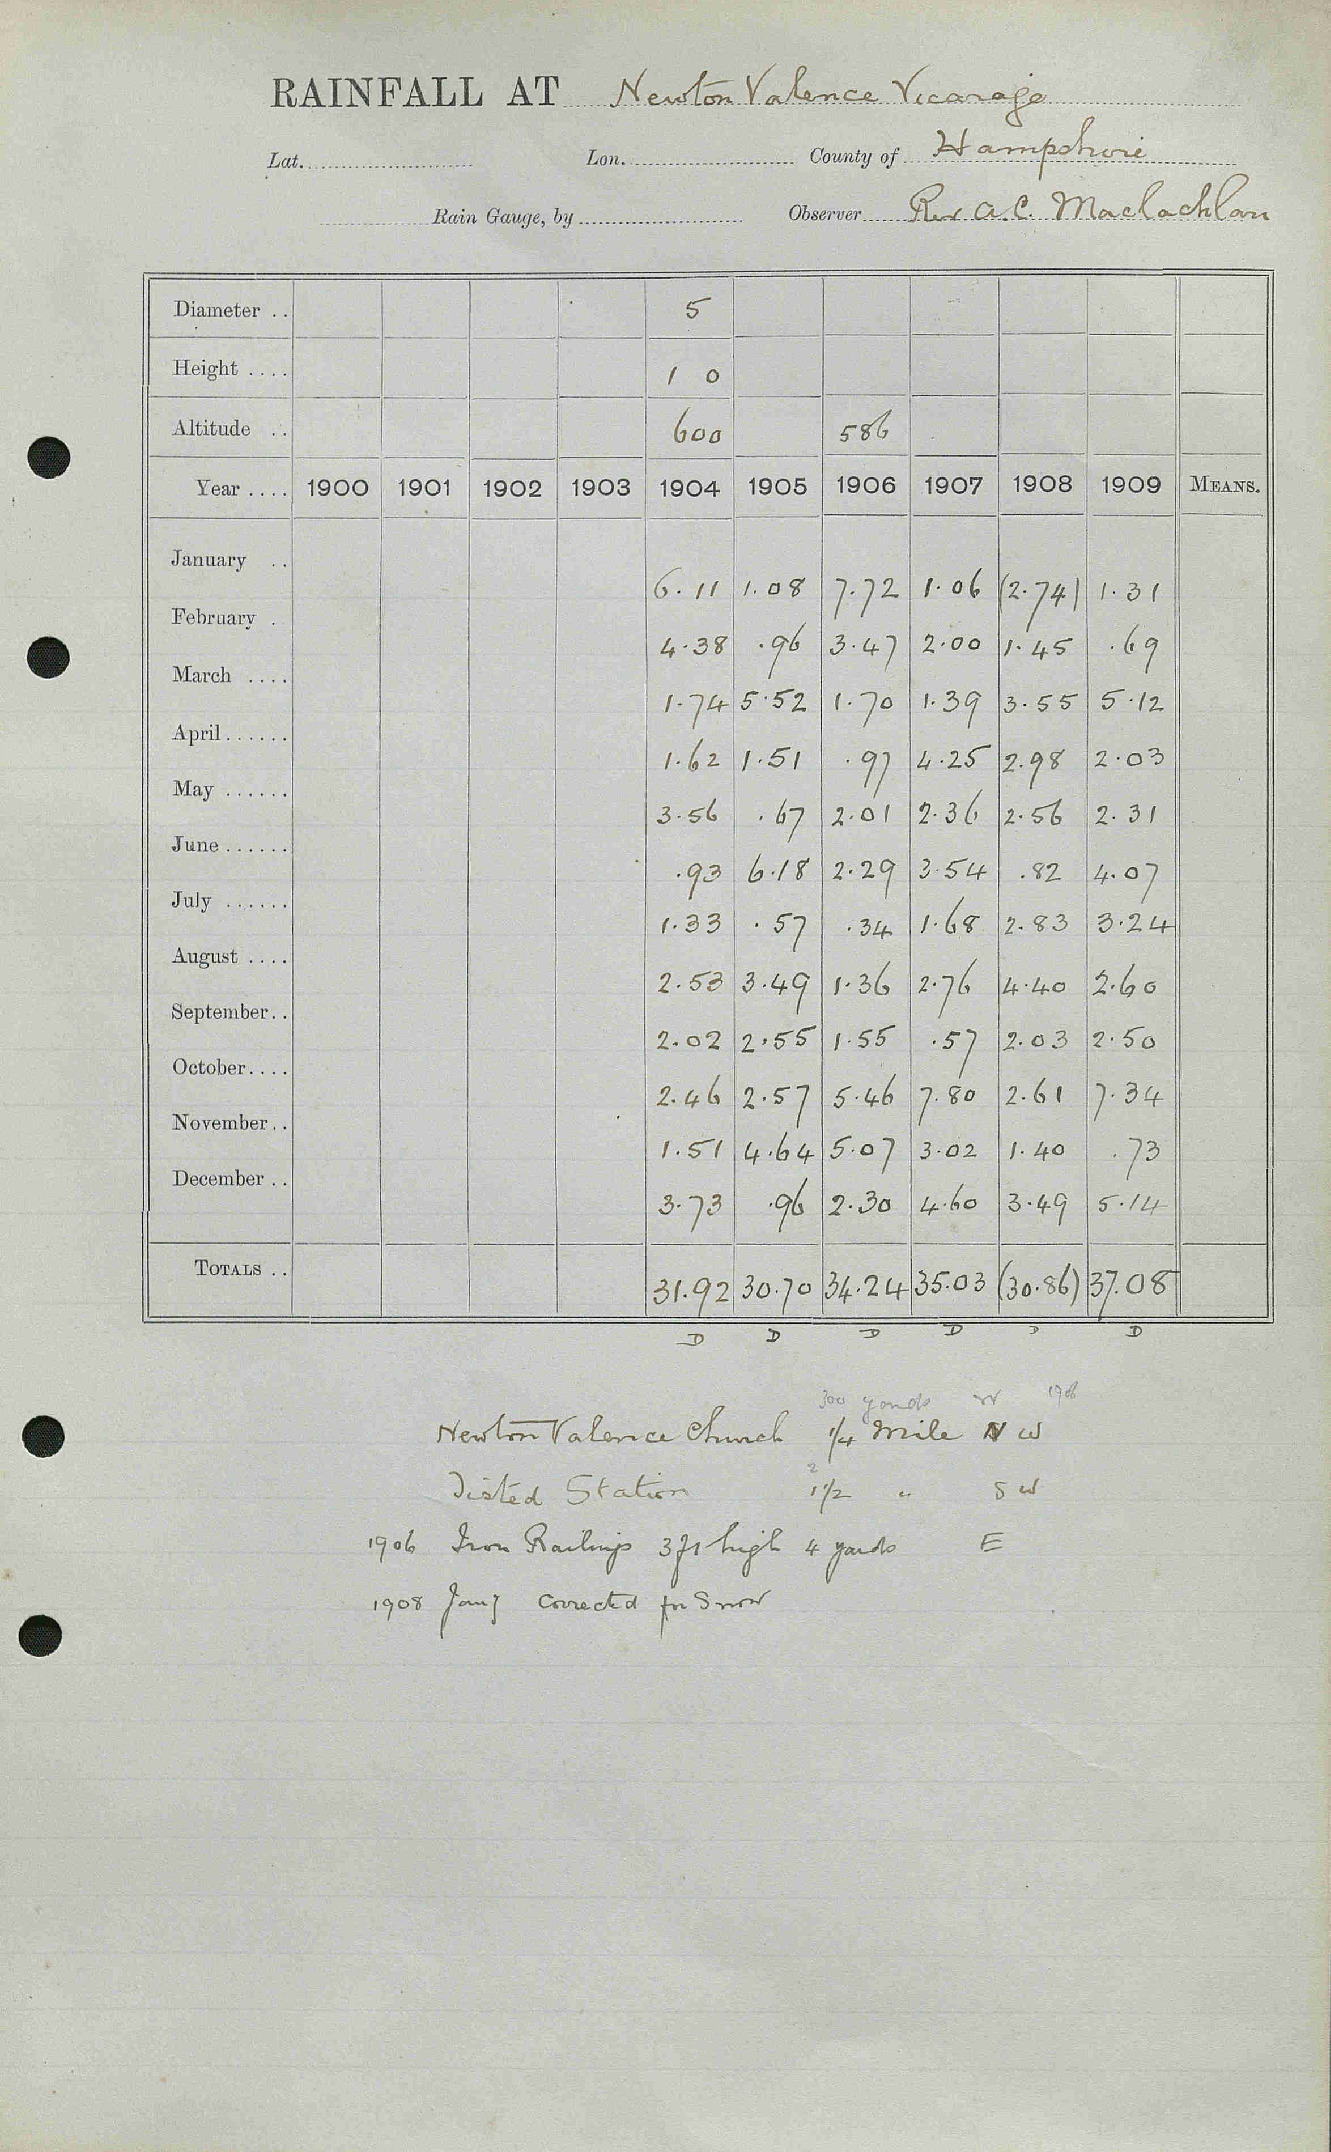 RAINFALL AT Newton Valence Vicarage
Lat. Lon. County of Hampshire
Rain Gauge, by Observer Rev A.C. Maclachlan
Diameter .. 5
Height .... 1 0
Altitude .. 600 586
Year .... 1900 1901 1902 1903 1904 1905 1906 1907 1908 1909 MEANS.
January .. 6.11 1.08 7.72 1.06 (2.74) 1.31
February . 4.38 .96 3.47 2.00 1.45 .69
March .... 1.74 5.52 1.70 1.39 3.55 5.12
April ...... 1.62 1.51 .97 4.25 2.98 2.03
May ...... 3.56 .67 2.01 2.36 2.56 2.31
June ...... .93 6.18 2.29 3.54 .82 4.07
July ...... 1.33 .57 .34 1.68 2.83 3.24
August .... 2.53 3.49 1.36 2.76 4.40 2.60
September .. 2.02 2.55 1.55 .57 2.03 2.50
October .... 2.46 2.57 5.46 7.80 2.61 7.34
November .. 1.51 4.64 5.07 3.02 1.40 .73
December .. 3.73 .96 2.30 4.60 3.49 5.14
TOTALS .. 31.92 30.70 34.24 35.03 (30.86) 37.08
D D D D D D
300 yards W 1906
Newton Valence Church 1/4 Mile N W
2
Tisted Station 1 1/2 " S W
1906 Iron Railings 3ft high 4 yards E
1908 Jany Corrected for Snow